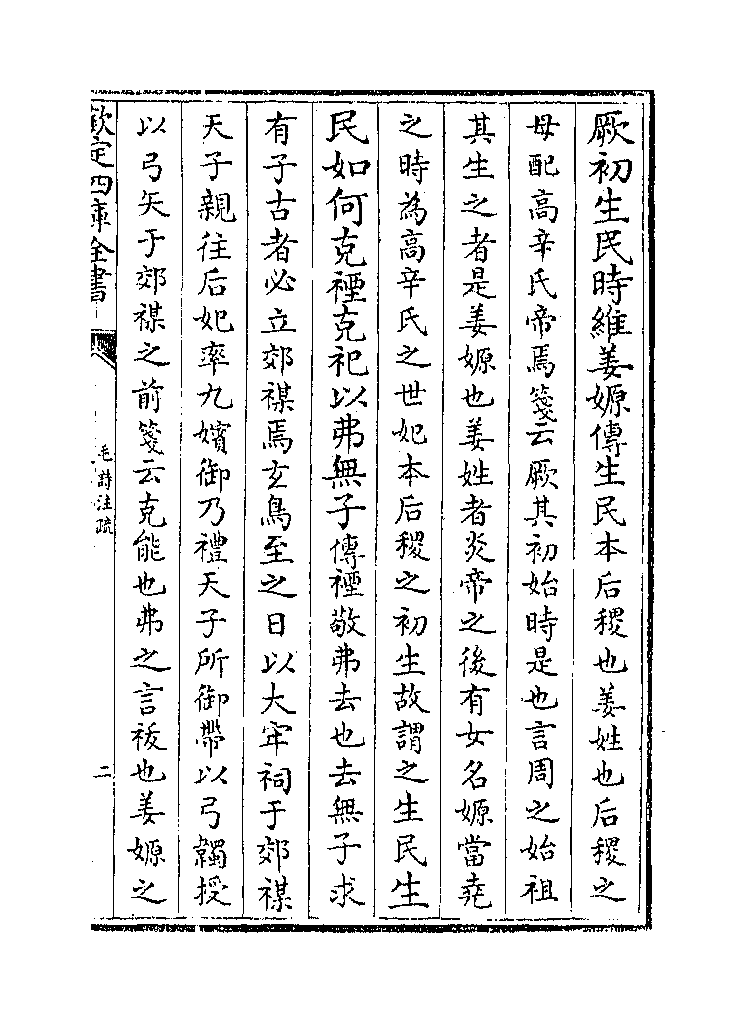 厥初生民時維姜嫄傳生民本后稷也姜姓也后稷之
母配高辛氏帝焉箋云厥其初始時是也言周之始祖
其生之者是姜嫄也姜姓者炎帝之後有女名嫄當堯
之時為高辛氏之世妃本后稷之初生故謂之生民生
民如何克禋克祀以弗無子傳禋敬弗去也去無子求
有子古者必立郊禖焉玄鳥至之日以大牢祠于郊禖
天子親往后妃率九嬪御乃禮天子所御帶以弓韣授
以弓矢于郊禖之前箋云克能也弗之言祓也姜嫄之
欽定四庫全書
毛詩注疏
二